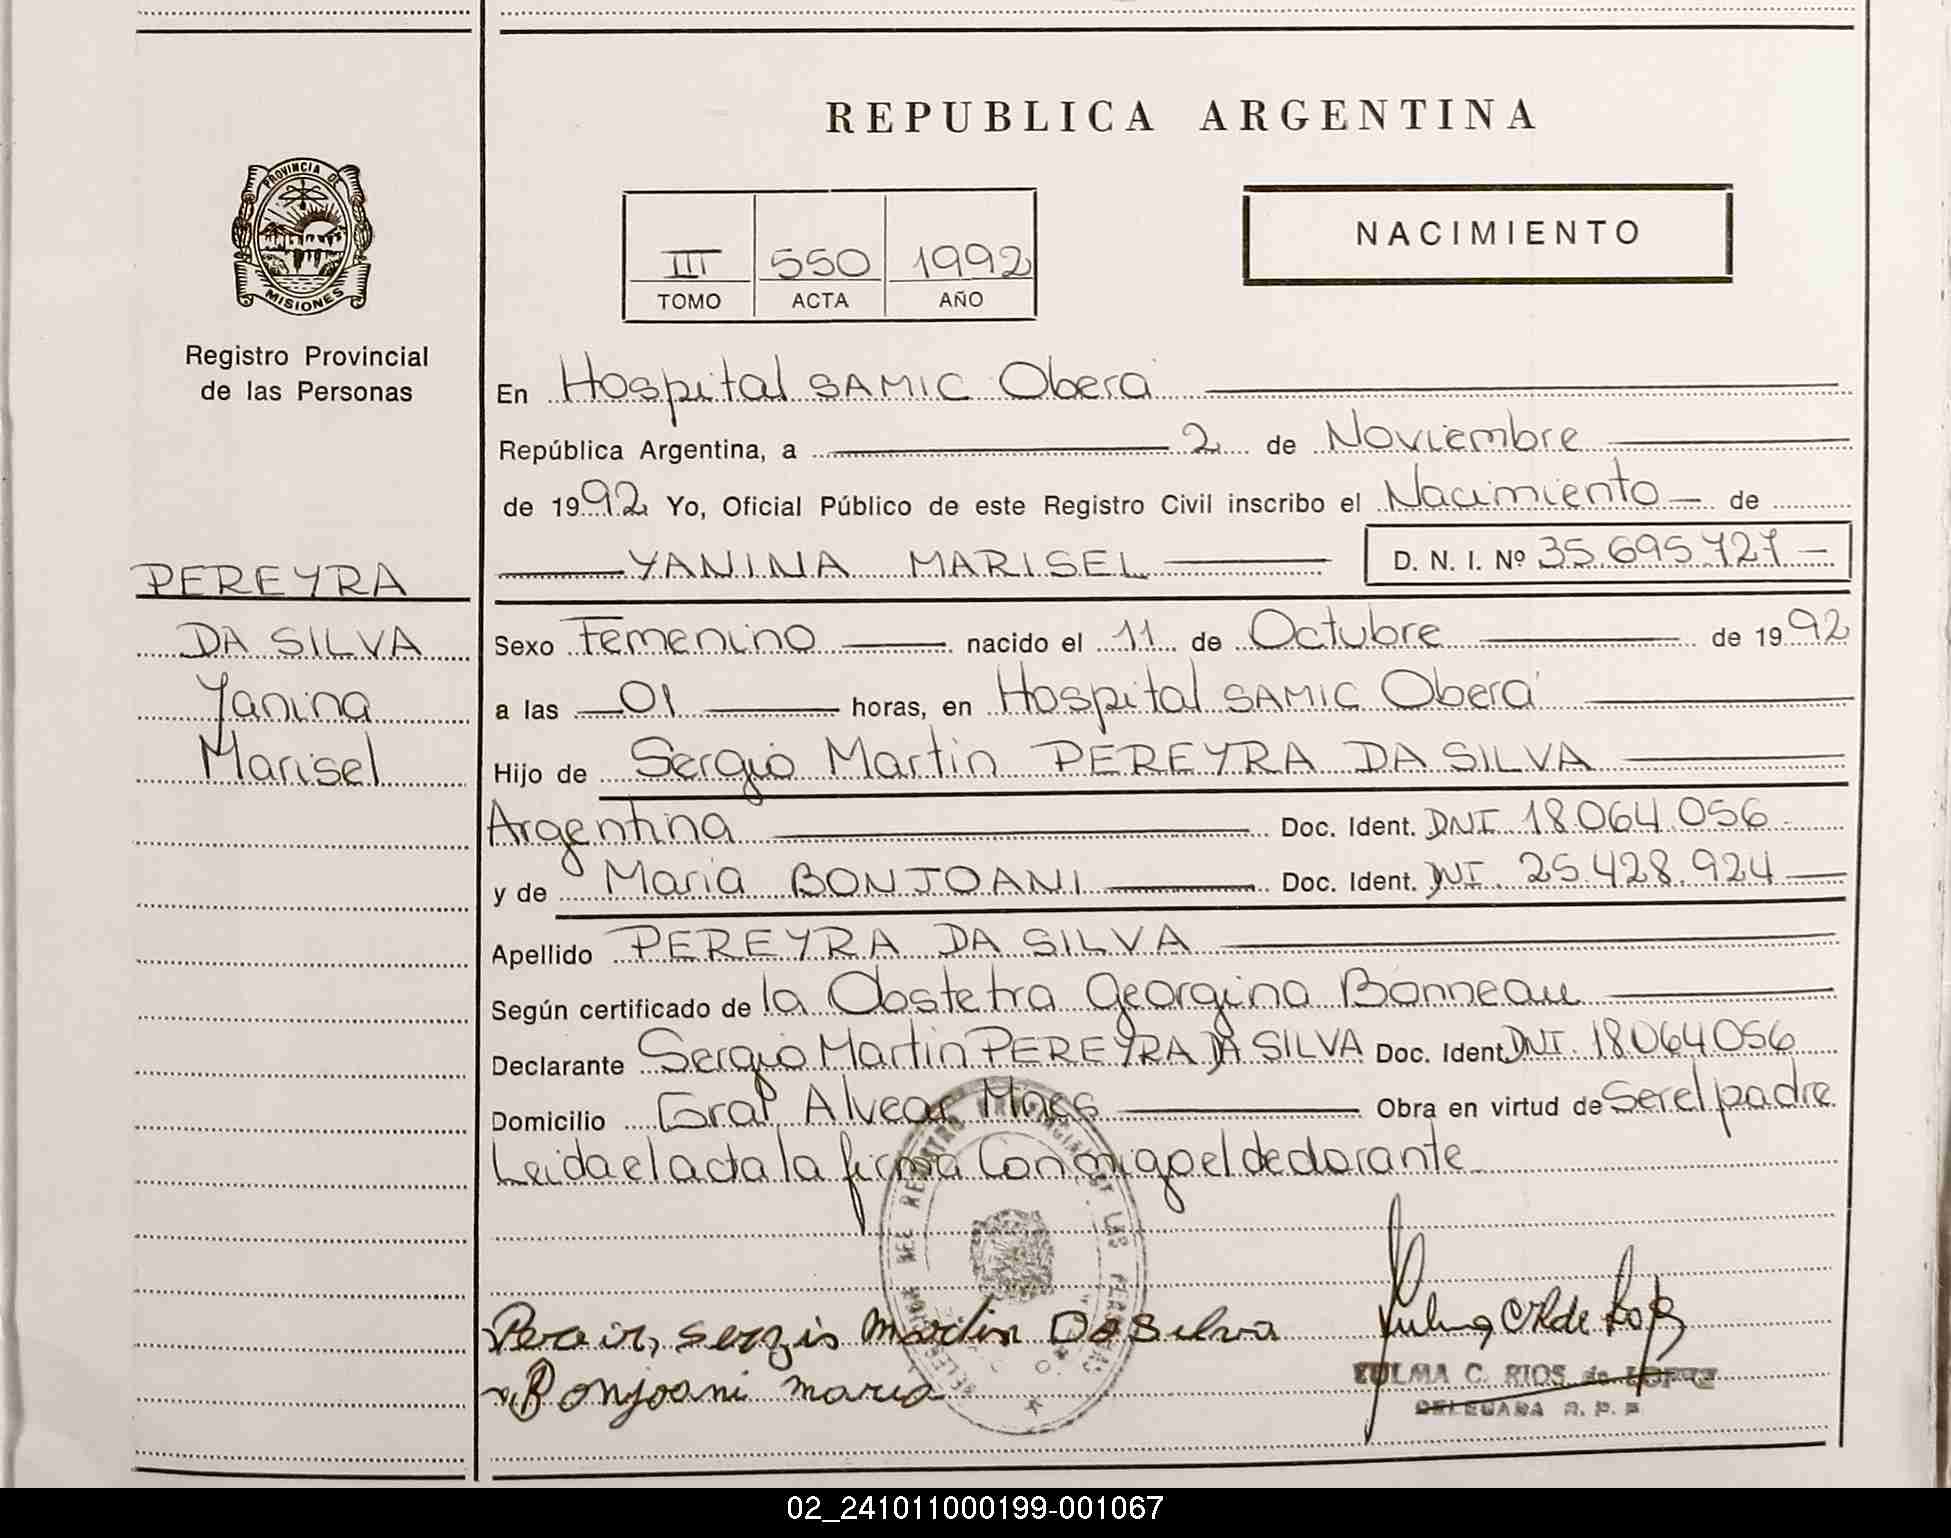 REPUBLICA ARGENTINA
PROVINCIA DE
MISIONES
Registro Provincial
de las Personas
III 550 1992
TOMO ACTA AÑO
NACIMIENTO
En Hospital SAMIC Oberá
República Argentina, a 2 de Noviembre
de 1992 Yo, Oficial Público de este Registro Civil inscribo el Nacimiento de
YANINA MARISEL D. N. I. Nº 35.695.727
PEREYRA
DA SILVA
Yanina
Marisel
Sexo Femenino nacido el 11 de Octubre de 1992
a las 01 horas, en Hospital SAMIC Oberá
Hijo de Sergio Martin PEREYRA DA SILVA
Argentina Doc. Ident. DNI 18.064.056
y de Maria BONJOANI Doc. Ident. DNI 25.428.924
Apellido PEREYRA DA SILVA
Según certificado de la Obstetra Georgina Bonneau
Declarante Sergio Martin PEREYRA DA SILVA Doc. Ident. DNI. 18064056
Domicilio Gral Alvear Mnes Obra en virtud de Ser el padre
Leida el acta la firma Conmigo el declarante
REGISTRO LAS PERSONAS
sergio Martin Da Silva
Bonjoani maria
ZULMA C. RIOS de LOPEZ
DELEGADA R. P. P.
02_241011000199-001067